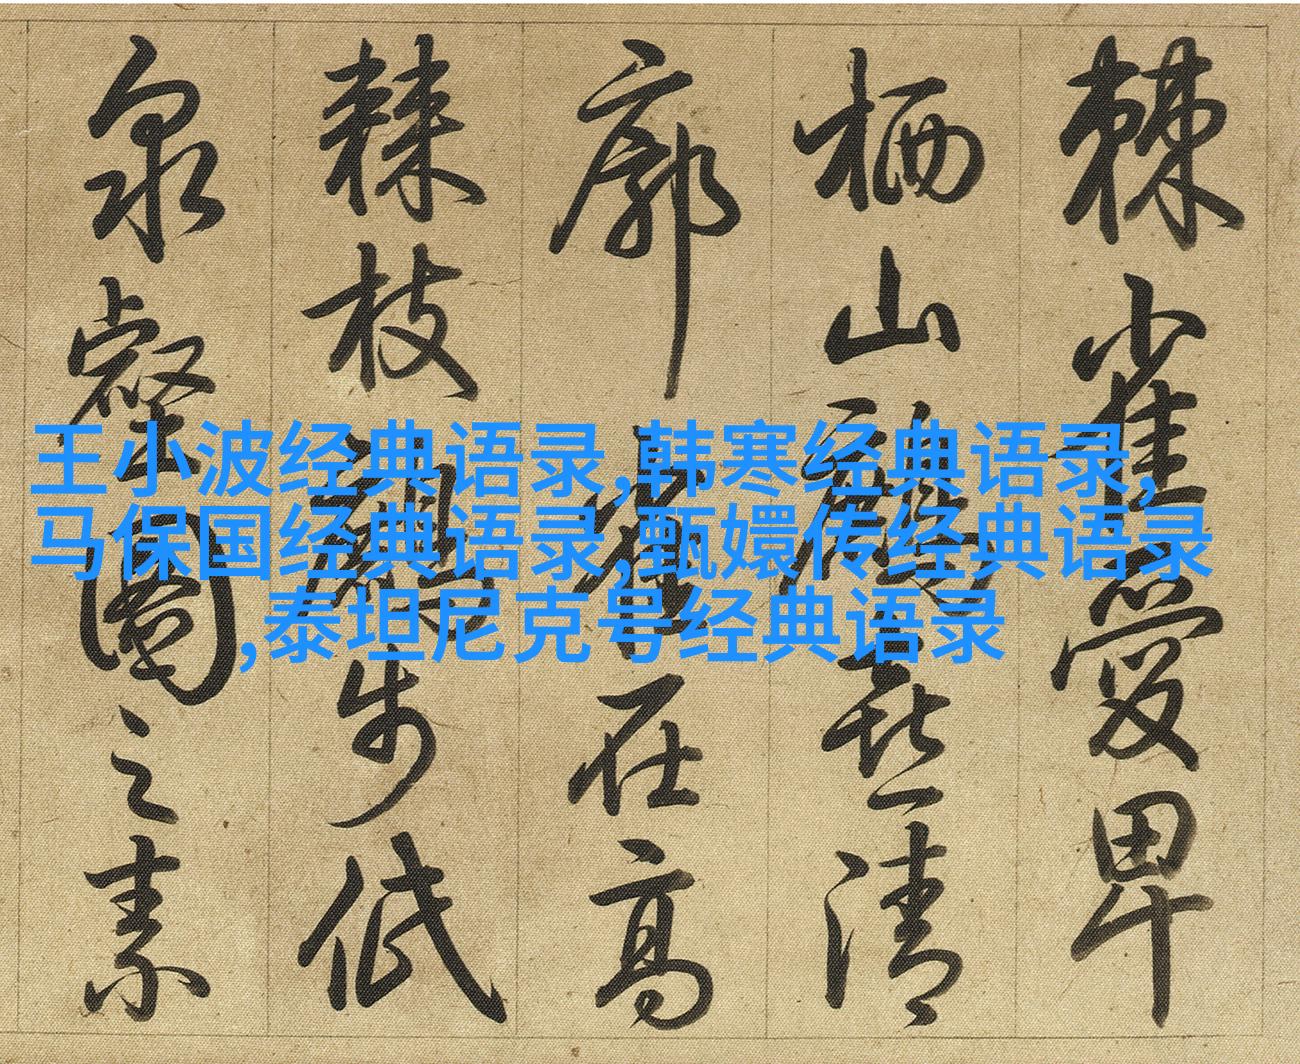 王小波经典语录,韩寒经典语录,
马保国经典语录,甄嬛传经典语录
,泰坦尼克号经典语录
棘雀愛卑
栖山喜清
廓在高
棘枝步低
泉圖之素